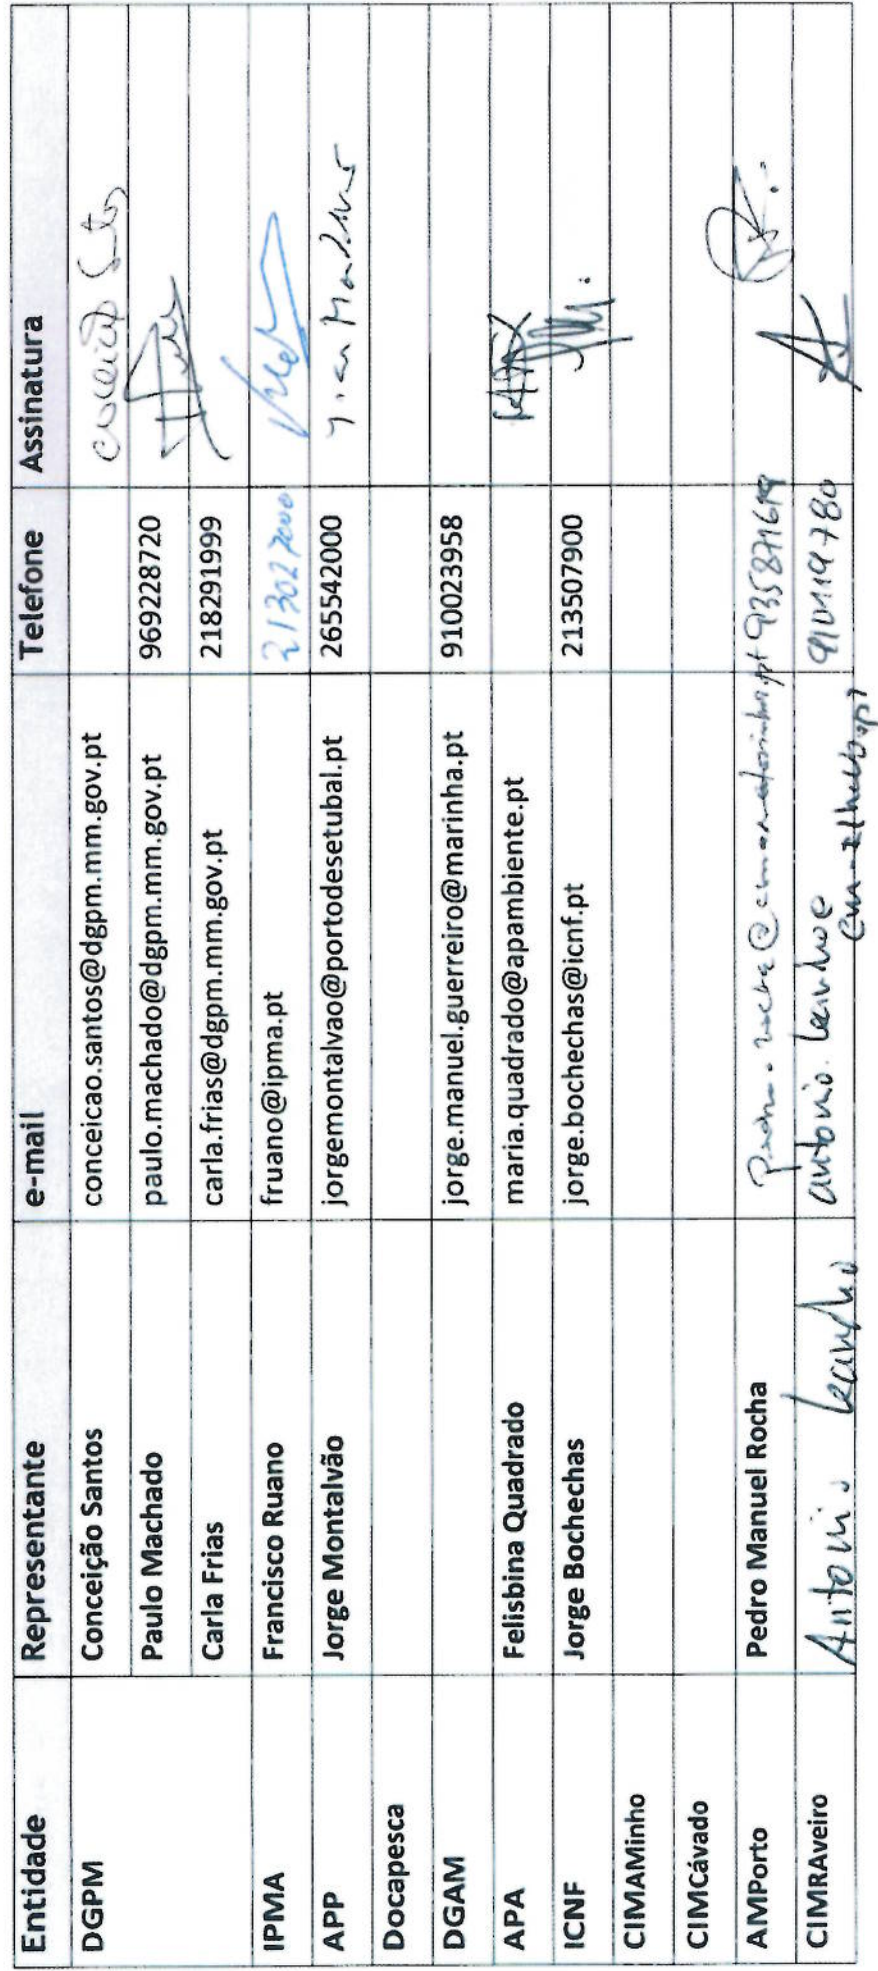 Entidade Representante e-mail Telefone Assinatura
DGPM Conceição Santos conceicao.santos@dgpm.mm.gov.pt Conceição Santos
Paulo Machado paulo.machado@dgpm.mm.gov.pt 969228720
Carla Frias carla.frias@dgpm.mm.gov.pt 218291999
IPMA Francisco Ruano fruano@ipma.pt 213027000
APP Jorge Montalvão jorgemontalvao@portodesetubal.pt 265542000
Docapesca
DGAM jorge.manuel.guerreiro@marinha.pt 910023958
APA Felisbina Quadrado maria.quadrado@apambiente.pt
ICNF Jorge Bochechas jorge.bochechas@icnf.pt 213507900
CIMAMinho
CIMCávado
AMPorto Pedro Manuel Rocha 935871619
CIMRAveiro Antonio Leandro antonio.leandro@